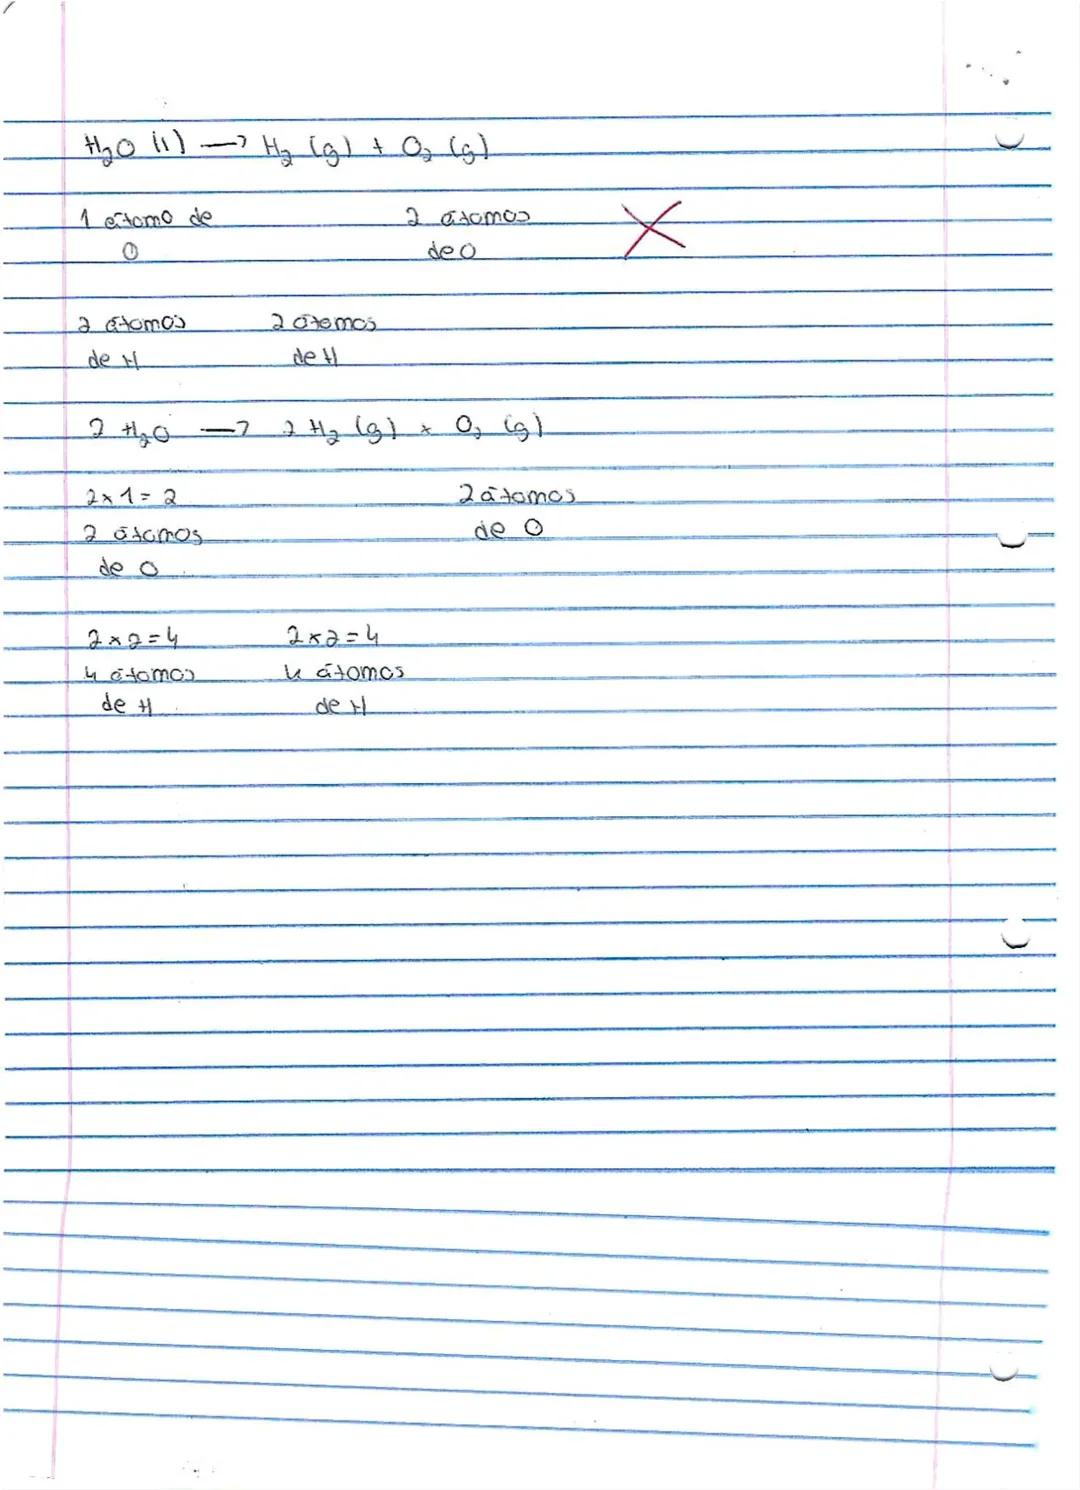 H₂O (l) → H₂ (g) + O₂ (g)
1 átomo de 2 átomos
O de O
2 átomos 2 átomos
de H de H
2 H₂O → 2 H₂ (g) + O₂ (g)
2x1=2 2 átomos
2 átomos de O
de O
2x2=4 2x2=4
4 átomos 4 átomos
de H de H